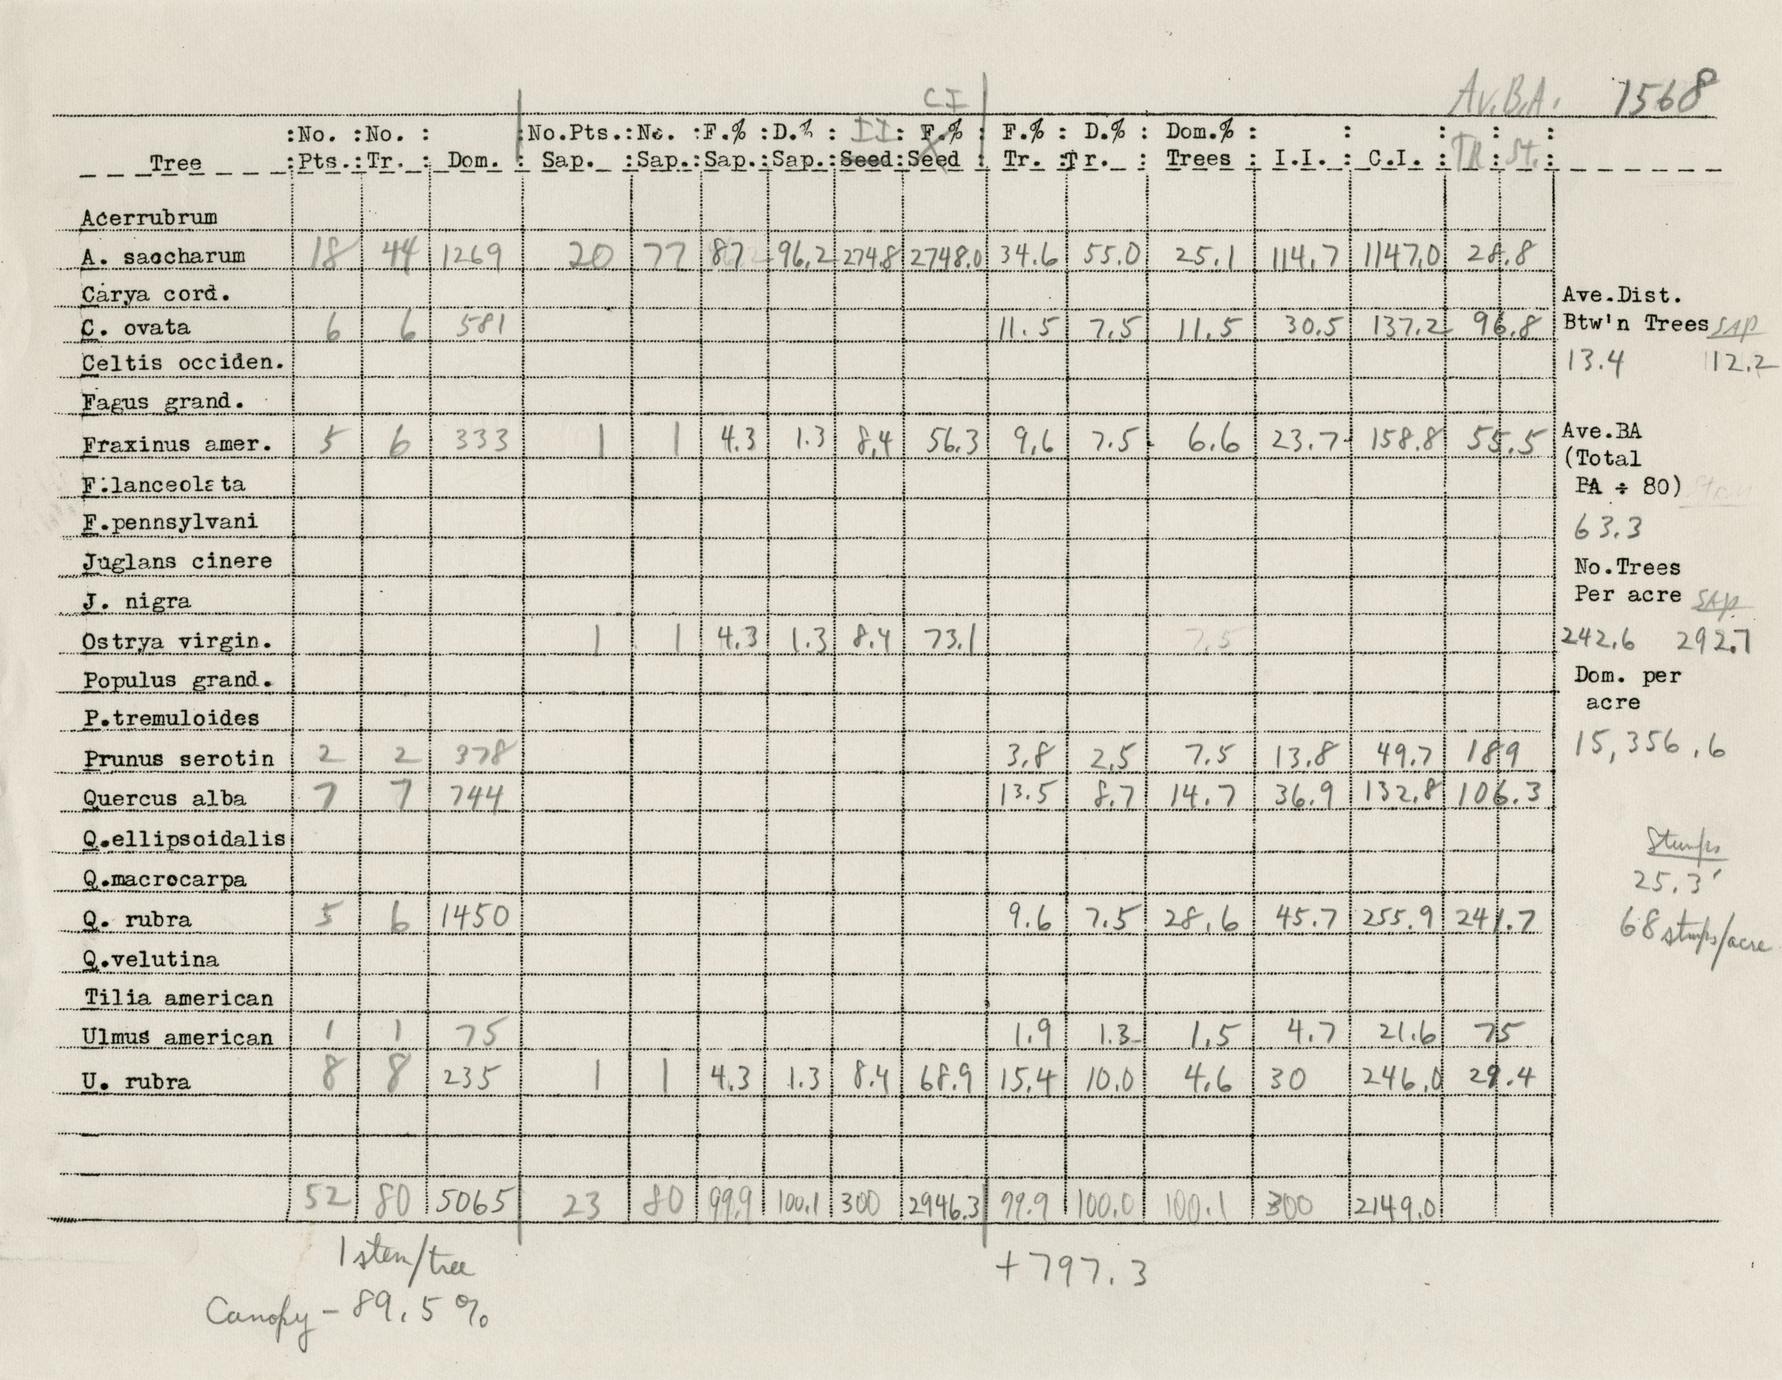 Av.B.A. 1568
CI
:No. :No. : :No.Pts.:No. :F.% :D.% : II : F.% : F.% : D.% : Dom.% : : : : :
Tree :Pts.:Tr. : Dom. : Sap. :Sap.:Sap.:Sap.:Seed:Seed : Tr. :Tr. : Trees : I.I. : C.I. : TR : St. :
Acerrubrum
A. saccharum 18 44 1269 20 77 87 96.2 274.8 2748.0 34.6 55.0 25.1 114.7 1147.0 28.8
Carya cord.
Ave.Dist.
C. ovata 6 6 581 11.5 7.5 11.5 30.5 137.2 96.8
Btw'n Trees sap
Celtis occiden.
13.4 112.2
Fagus grand.
Fraxinus amer. 5 6 333 1 1 4.3 1.3 8.4 56.3 9.6 7.5 6.6 23.7 158.8 55.5
Ave.BA
(Total
F.lanceolata
BA ÷ 80)
F.pennsylvani
63.3
Juglans cinere
No.Trees
J. nigra
Per acre sap
Ostrya virgin. 1 1 4.3 1.3 8.4 73.1 7.5
242.6 292.7
Populus grand.
Dom. per
acre
P.tremuloides
Prunus serotin 2 2 378 3.8 2.5 7.5 13.8 49.7 189
15,356.6
Quercus alba 7 7 744 13.5 8.7 14.7 36.9 132.8 106.3
Q.ellipsoidalis
Stumps
Q.macrocarpa
25.3'
Q. rubra 5 6 1450 9.6 7.5 28.6 45.7 255.9 241.7
68 stumps/acre
Q.velutina
Tilia american
Ulmus american 1 1 75 1.9 1.3 1.5 4.7 21.6 75
U. rubra 8 8 235 1 1 4.3 1.3 8.4 68.9 15.4 10.0 4.6 30 246.0 29.4
52 80 5065 23 80 99.9 100.1 300 2946.3 99.9 100.0 100.1 300 2149.0
1 stem/tree
+797.3
Canopy - 89.5%